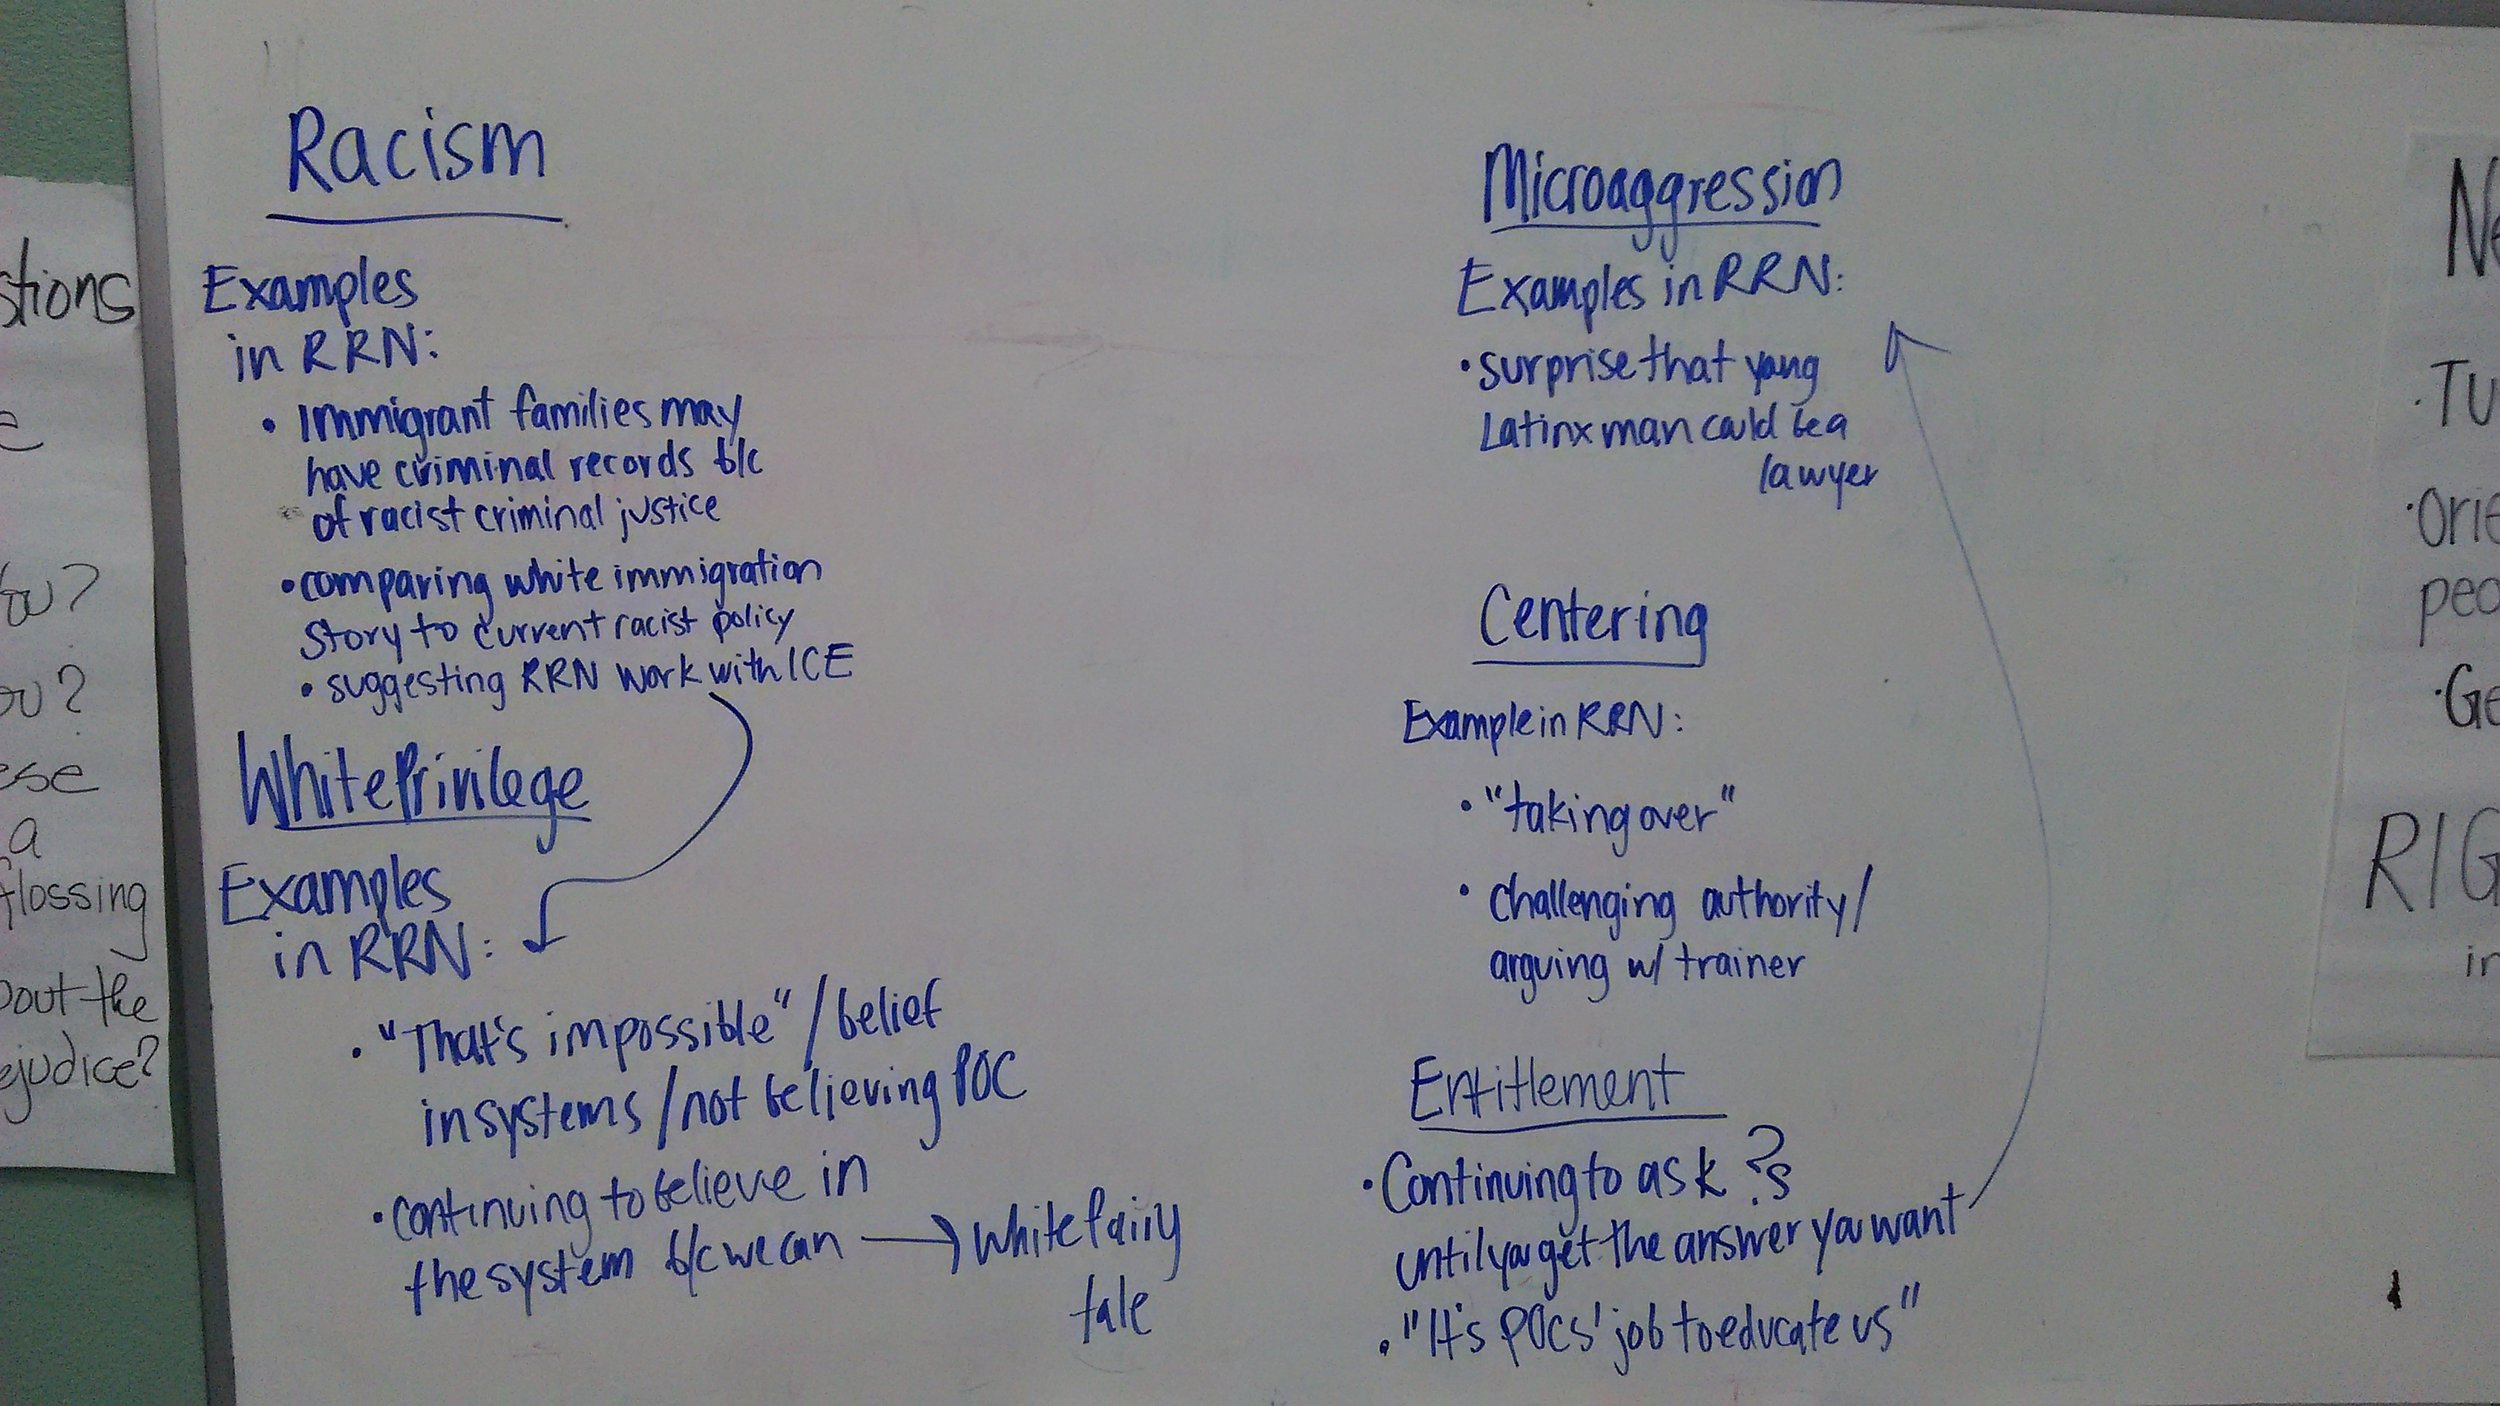 Racism
Examples
in RRN:
• Immigrant families may
have criminal records b/c
of racist criminal justice
• comparing white immigration
story to current racist policy
• suggesting RRN work with ICE
White Privilege
Examples
in RRN:
• "That's impossible" / belief
in systems / not believing POC
• continuing to believe in
the system b/c we can → White fairy
tale
Microaggression
Examples in RRN:
• surprise that young
Latinx man could be a
lawyer
Centering
Example in RRN:
• "taking over"
• challenging authority/
arguing w/ trainer
Entitlement
• Continuing to ask ?s
until you get the answer you want
• "It's POCs' job to educate us"
stions
e
ou?
ese
a
flossing
bout the
ejudice?
Ne
• TU
• Orie
peo
• Ge
RIG
in